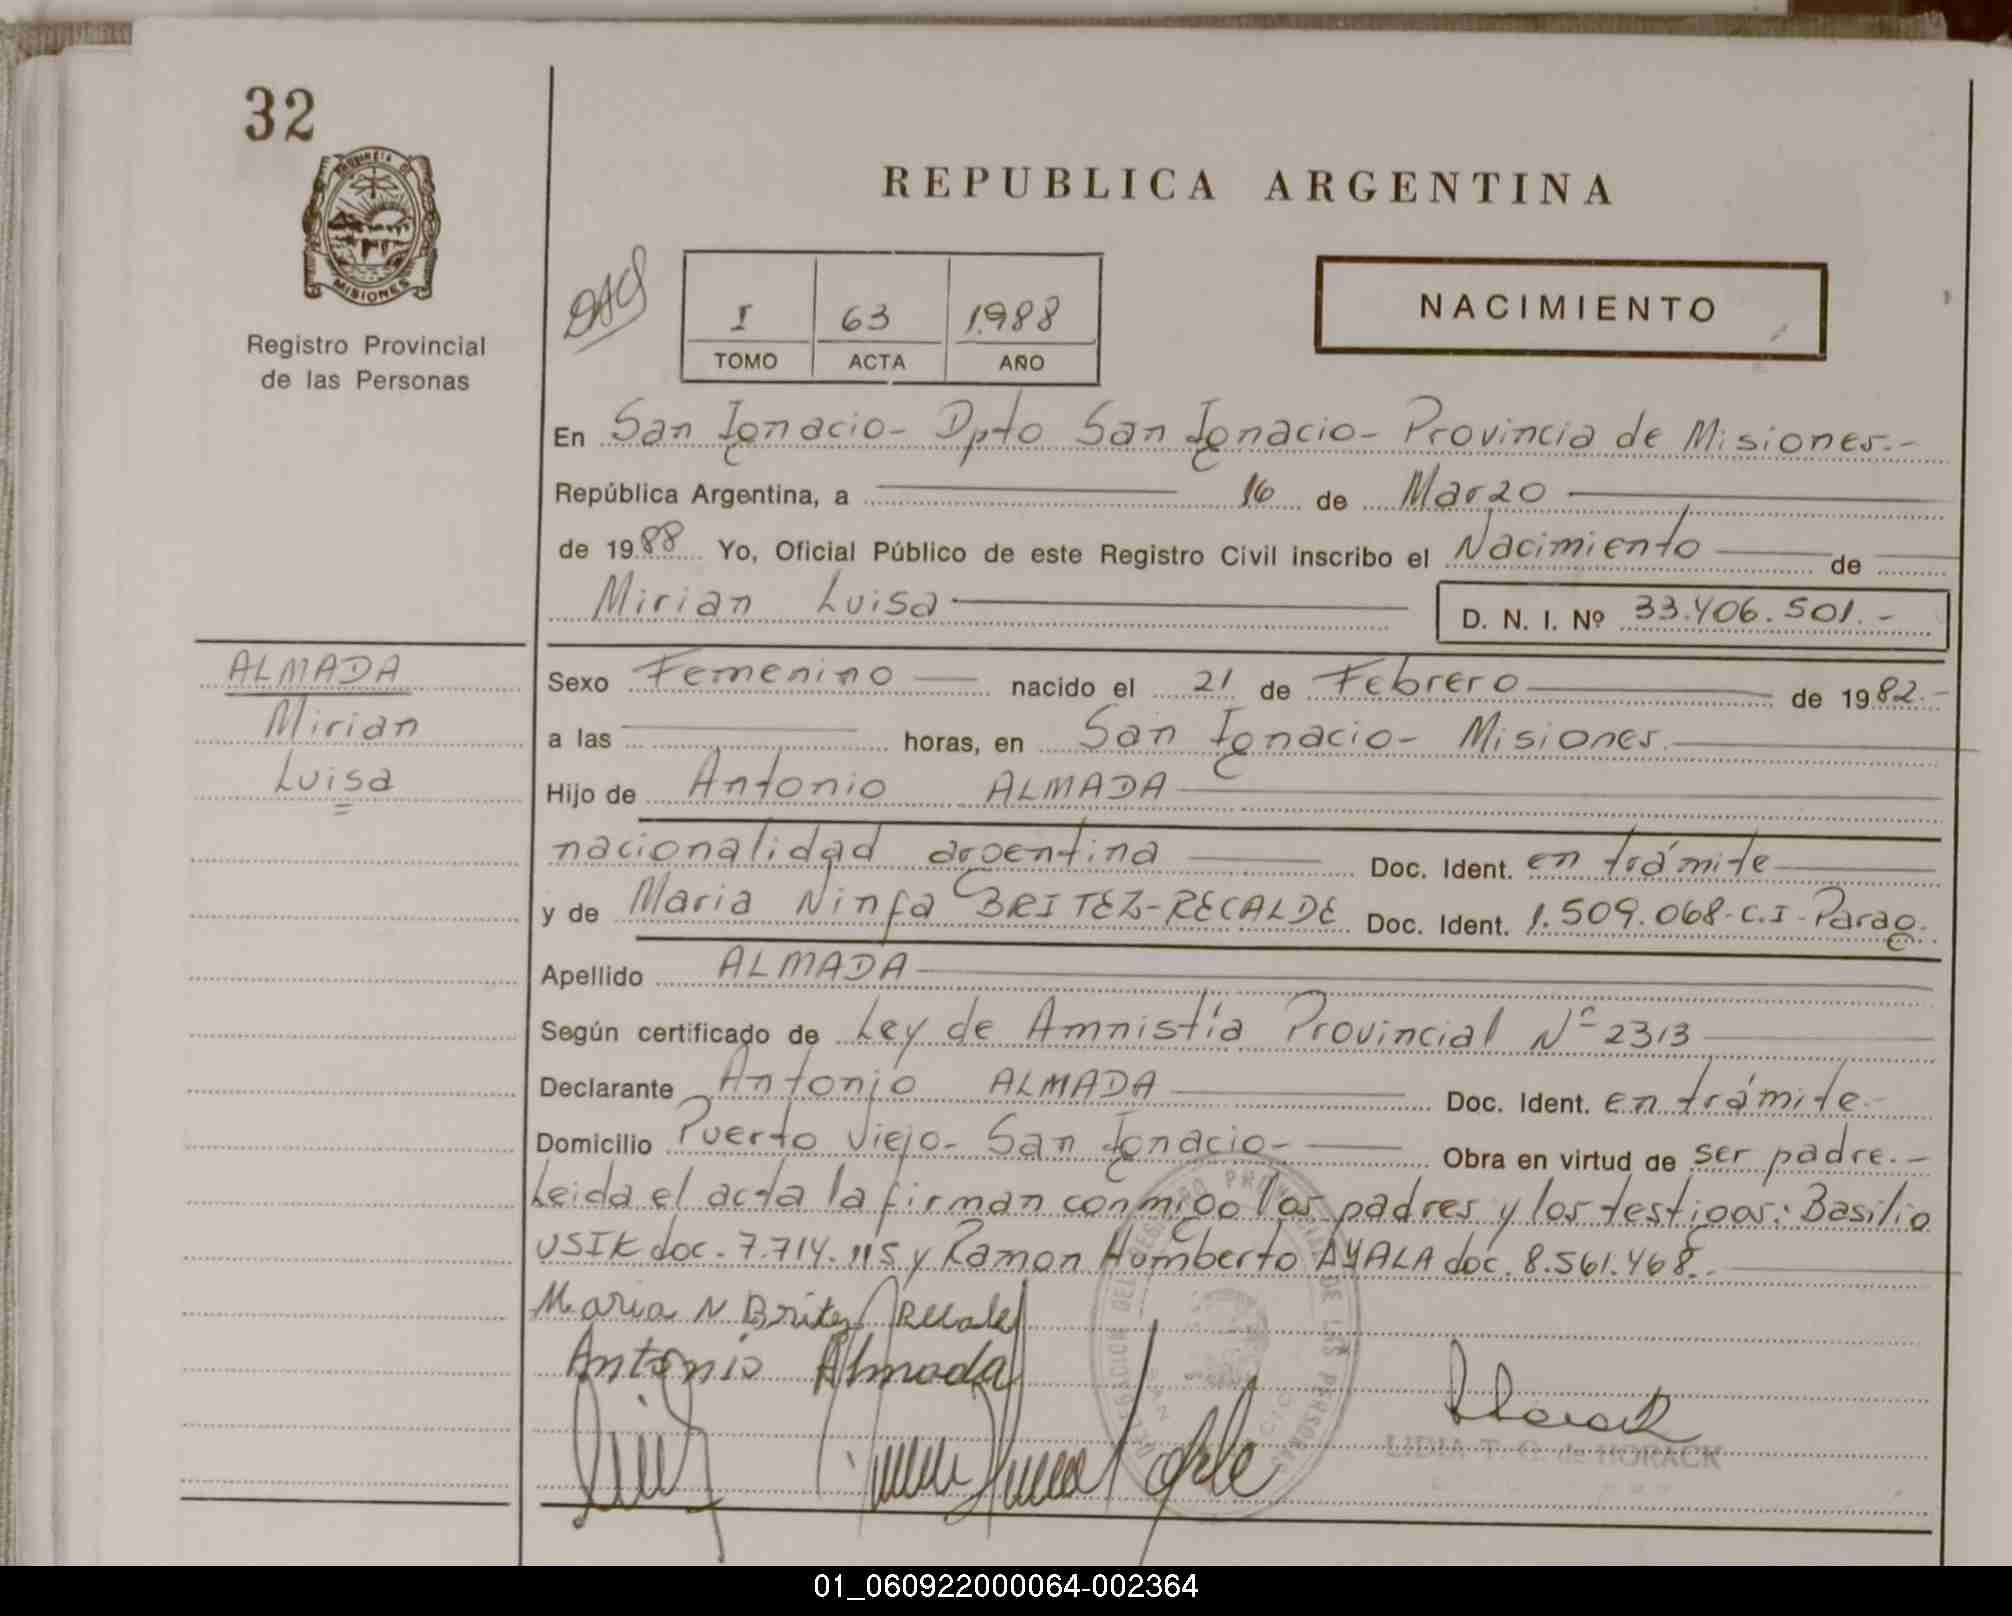 32
PROVINCIA
MISIONES
Registro Provincial
de las Personas
REPUBLICA ARGENTINA
I 63 1988
TOMO ACTA AÑO
NACIMIENTO
En San Ignacio- Dpto San Ignacio- Provincia de Misiones.-
República Argentina, a 16 de Marzo
de 1988 Yo, Oficial Público de este Registro Civil inscribo el Nacimiento de
Mirian Luisa
D. N. I. Nº 33.406.501.-
ALMADA
Mirian
Luisa
Sexo Femenino nacido el 21 de Febrero de 1982.-
a las horas, en San Ignacio- Misiones.
Hijo de Antonio ALMADA
nacionalidad argentina Doc. Ident. en trámite
y de Maria Ninfa BRITEZ-RECALDE Doc. Ident. 1.509.068-C.I-Parag.
Apellido ALMADA
Según certificado de Ley de Amnistía Provincial Nº 2313
Declarante Antonio ALMADA Doc. Ident. en trámite-
Domicilio Puerto Viejo- San Ignacio- Obra en virtud de ser padre.-
Leida el acta la firman conmigo los padres y los testigos: Basilio
USIK doc. 7.714.115 y Ramon Humberto AYALA doc. 8.561.468.-
Maria N Britez Recalde
Antonio Almada
Horack
LIDIA T. G. de HORACK
DELEGACION DEL REGISTRO PROVINCIAL DE LAS PERSONAS
SAN IGNACIO
01_060922000064-002364